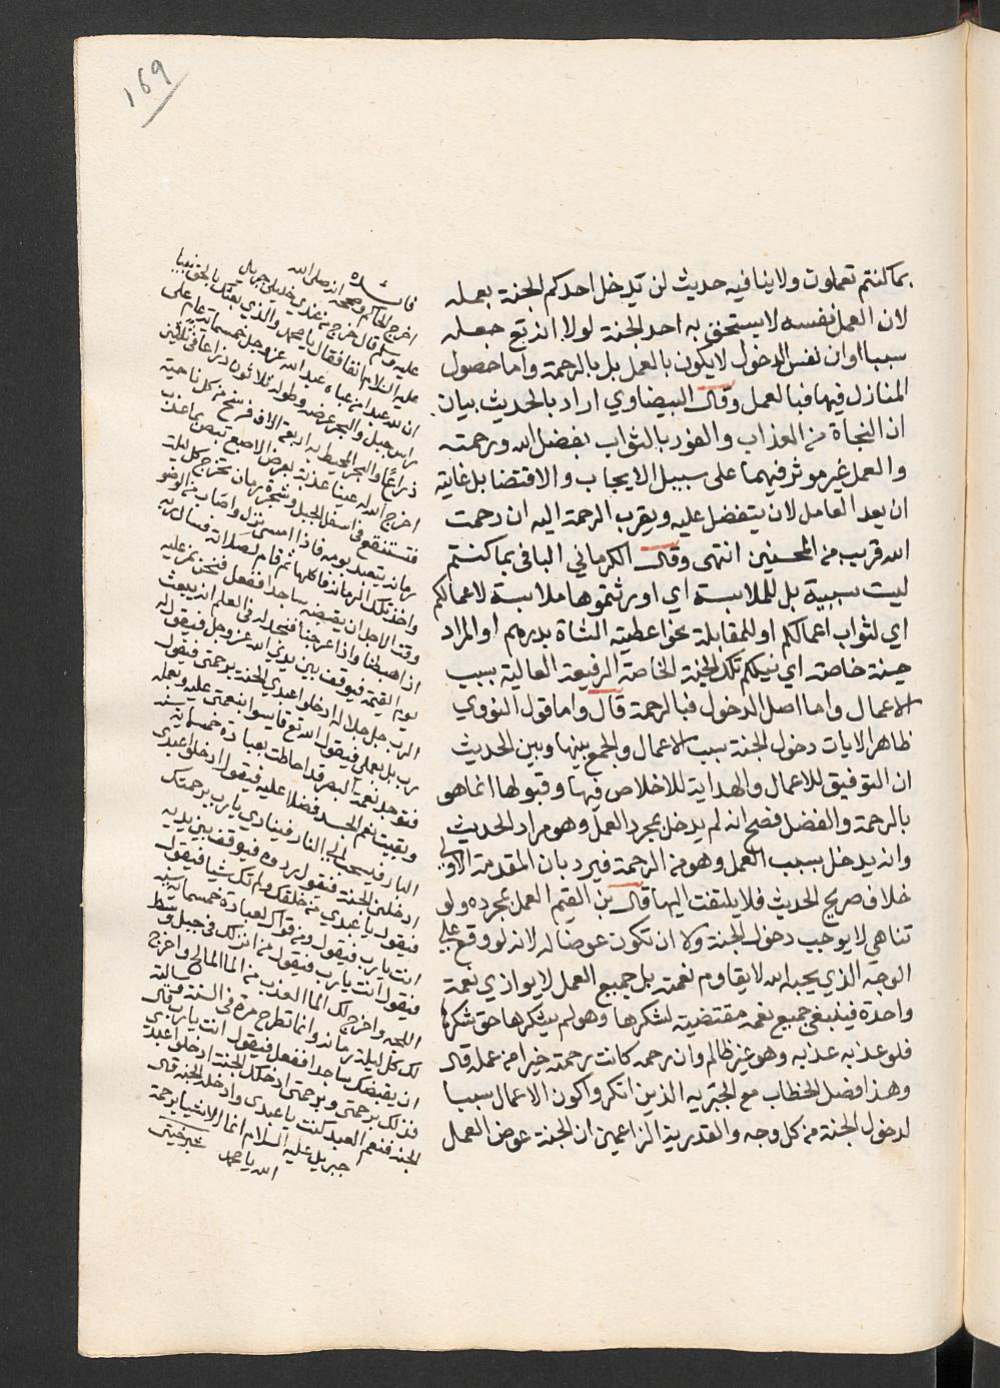 169
بما كنتم تعملون ولا ينافيه حديث لن يدخل احدكم الجنة بعمله
لان العمل بنفسه لا يستحق به احد الجنة لولا انه تع جعله
سببا او ان نفس الدخول لا يكون بالعمل بل بالرحمة واما حصول
المنازل فيها فبالعمل وقال البيضاوي اراد بالحديث بيان
ان النجاة من العذاب والفوز بالثواب بفضل الله ورحمته
والعمل غير موثر فيهما على سبيل الايجاب والاقتضا بل غايته
ان يعد العامل لان يتفضل عليه ويقرب الرحمة اليه ان رحمت
الله قريب من المحسنين انتهى وقال الكرماني البا في بما كنتم
ليست سببية بل للملابسة اي اورثتموها ملابسة لاعمالكم
اي لثواب اعمالكم او للمقابلة نحو اعطيته الشاة بدرهم او المراد
جنة خاصة اي نيلكم تلك الجنة الخاصة الرفيعة العالية بسبب
الاعمال واما اصل الدخول فبالرحمة قال واما قول النووي
ظاهر الايات دخول الجنة بسبب الاعمال والجمع بينها وبين الحديث
ان التوفيق للاعمال والهداية للاخلاص فيها وقبولها انما هو
بالرحمة والفضل فصح انه لم يدخل بمجرد العمل وهو مراد الحديث
وانه يدخل بسبب العمل وهو من الرحمة فيرد بان المقدمة الاولى
خلاف صريح الحديث فلا يلتفت اليها قال بن القيم العمل بمجرده ولو
تناهى لا يوجب دخول الجنة ولا ان تكون عوضا له لانه لو وقع على
الوجه الذي يحبه الله لا يقاوم نعمته بل جميع العمل لا يوازي نعمة
واحدة فيبقى جميع نعمه مقتضية لشكرها وهو لم يشكرها حق شكرها
فلو عذبه عذبه وهو غير ظالم وان رحمه كانت رحمته خيرا من عمله قال
وهذا فصل الخطاب مع الجبرية الذين انكروا كون الاعمال سببا
لدخول الجنة من كل وجه والقدرية الزاعمين ان الجنة عوض العمل
فائدة
اخرج الحاكم وصححه انه صلى الله
عليه وسلم قال خرج من عندي خليلي جبريل
عليه السلام انفا فقال يا محمد والذي بعثك بالحق نبيا
ان لله عبدا من عباده عبد الله عز وجل خمسماية عام على
راس جبل والبحر عرضه وطوله ثلاثون ذراعا في ثلاثين
ذراعا والبحر المحيط به اربعة الاف فرسخ من كل ناحية
اخرج الله له عينا عذبة بعرض الاصبع تبض بماء عذب
فتستنقع في اسفل الجبل وشجرة رمان تخرج كل ليلة
رمانة يتعبد يومه فاذا امسى نزل واصاب من الوضو
واخذ تلك الرمانة فاكلها ثم قام لصلاته فسال ربه
وقت الاجل ان يقبضه ساجدا ففعل فنحن نمر عليه
اذا هبطنا واذا عرجنا فنجد له في العلم انه يبعث
يوم القيمة فيوقف بين يدي الله عز وجل فيقول له
الرب جل جلاله ادخلوا عبدي الجنة برحمتي فيقول
رب بل بعملي فيقول الله تع قايسوا بنعمتي عليه وبعمله
فتوجد نعمة البصر قد احاطت بعبادة خمسماية سنة
وبقيت نعم الجسد فضلا عليه فيقول ادخلوا عبدي
النار فيسحب الى النار فينادي يا رب برحمتك
ادخلني الجنة فيقول ردوه فيوقف بين يديه
فيقول يا عبدي من خلقك ولم تك شيا فيقول
انت يا رب فيقول من قواك لعبادة خمسماية سنة
فيقول انت يا رب فيقول من انزلك في جبل وسط
اللجة واخرج لك الما العذب من الما المالح واخرج
لك كل ليلة رمانة وانما تطرح مرة في السنة وسالته
ان يقبضك ساجدا ففعل فيقول انت يا رب قال
فذلك برحمتي وبرحمتي ادخلك الجنة ادخلوا عبدي
الجنة فنعم العبد كنت يا عبدي وادخله الجنة قال
جبريل عليه السلام انما الاشيا برحمة
الله يا محمد